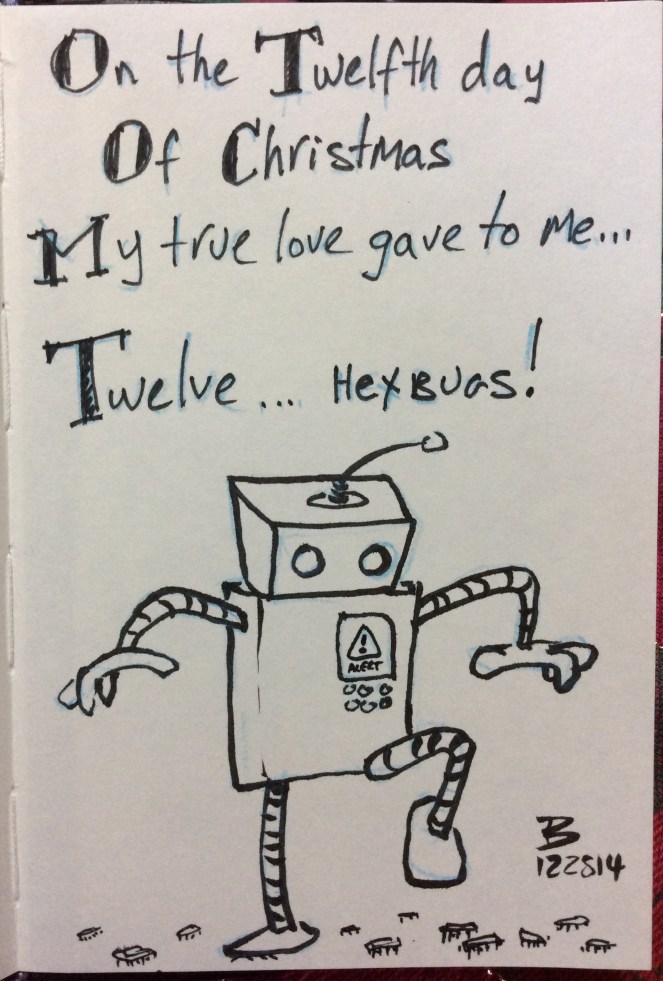 On the Twelfth day
Of Christmas
My true love gave to me...
Twelve... HexBugs!
ALERT
B
122814